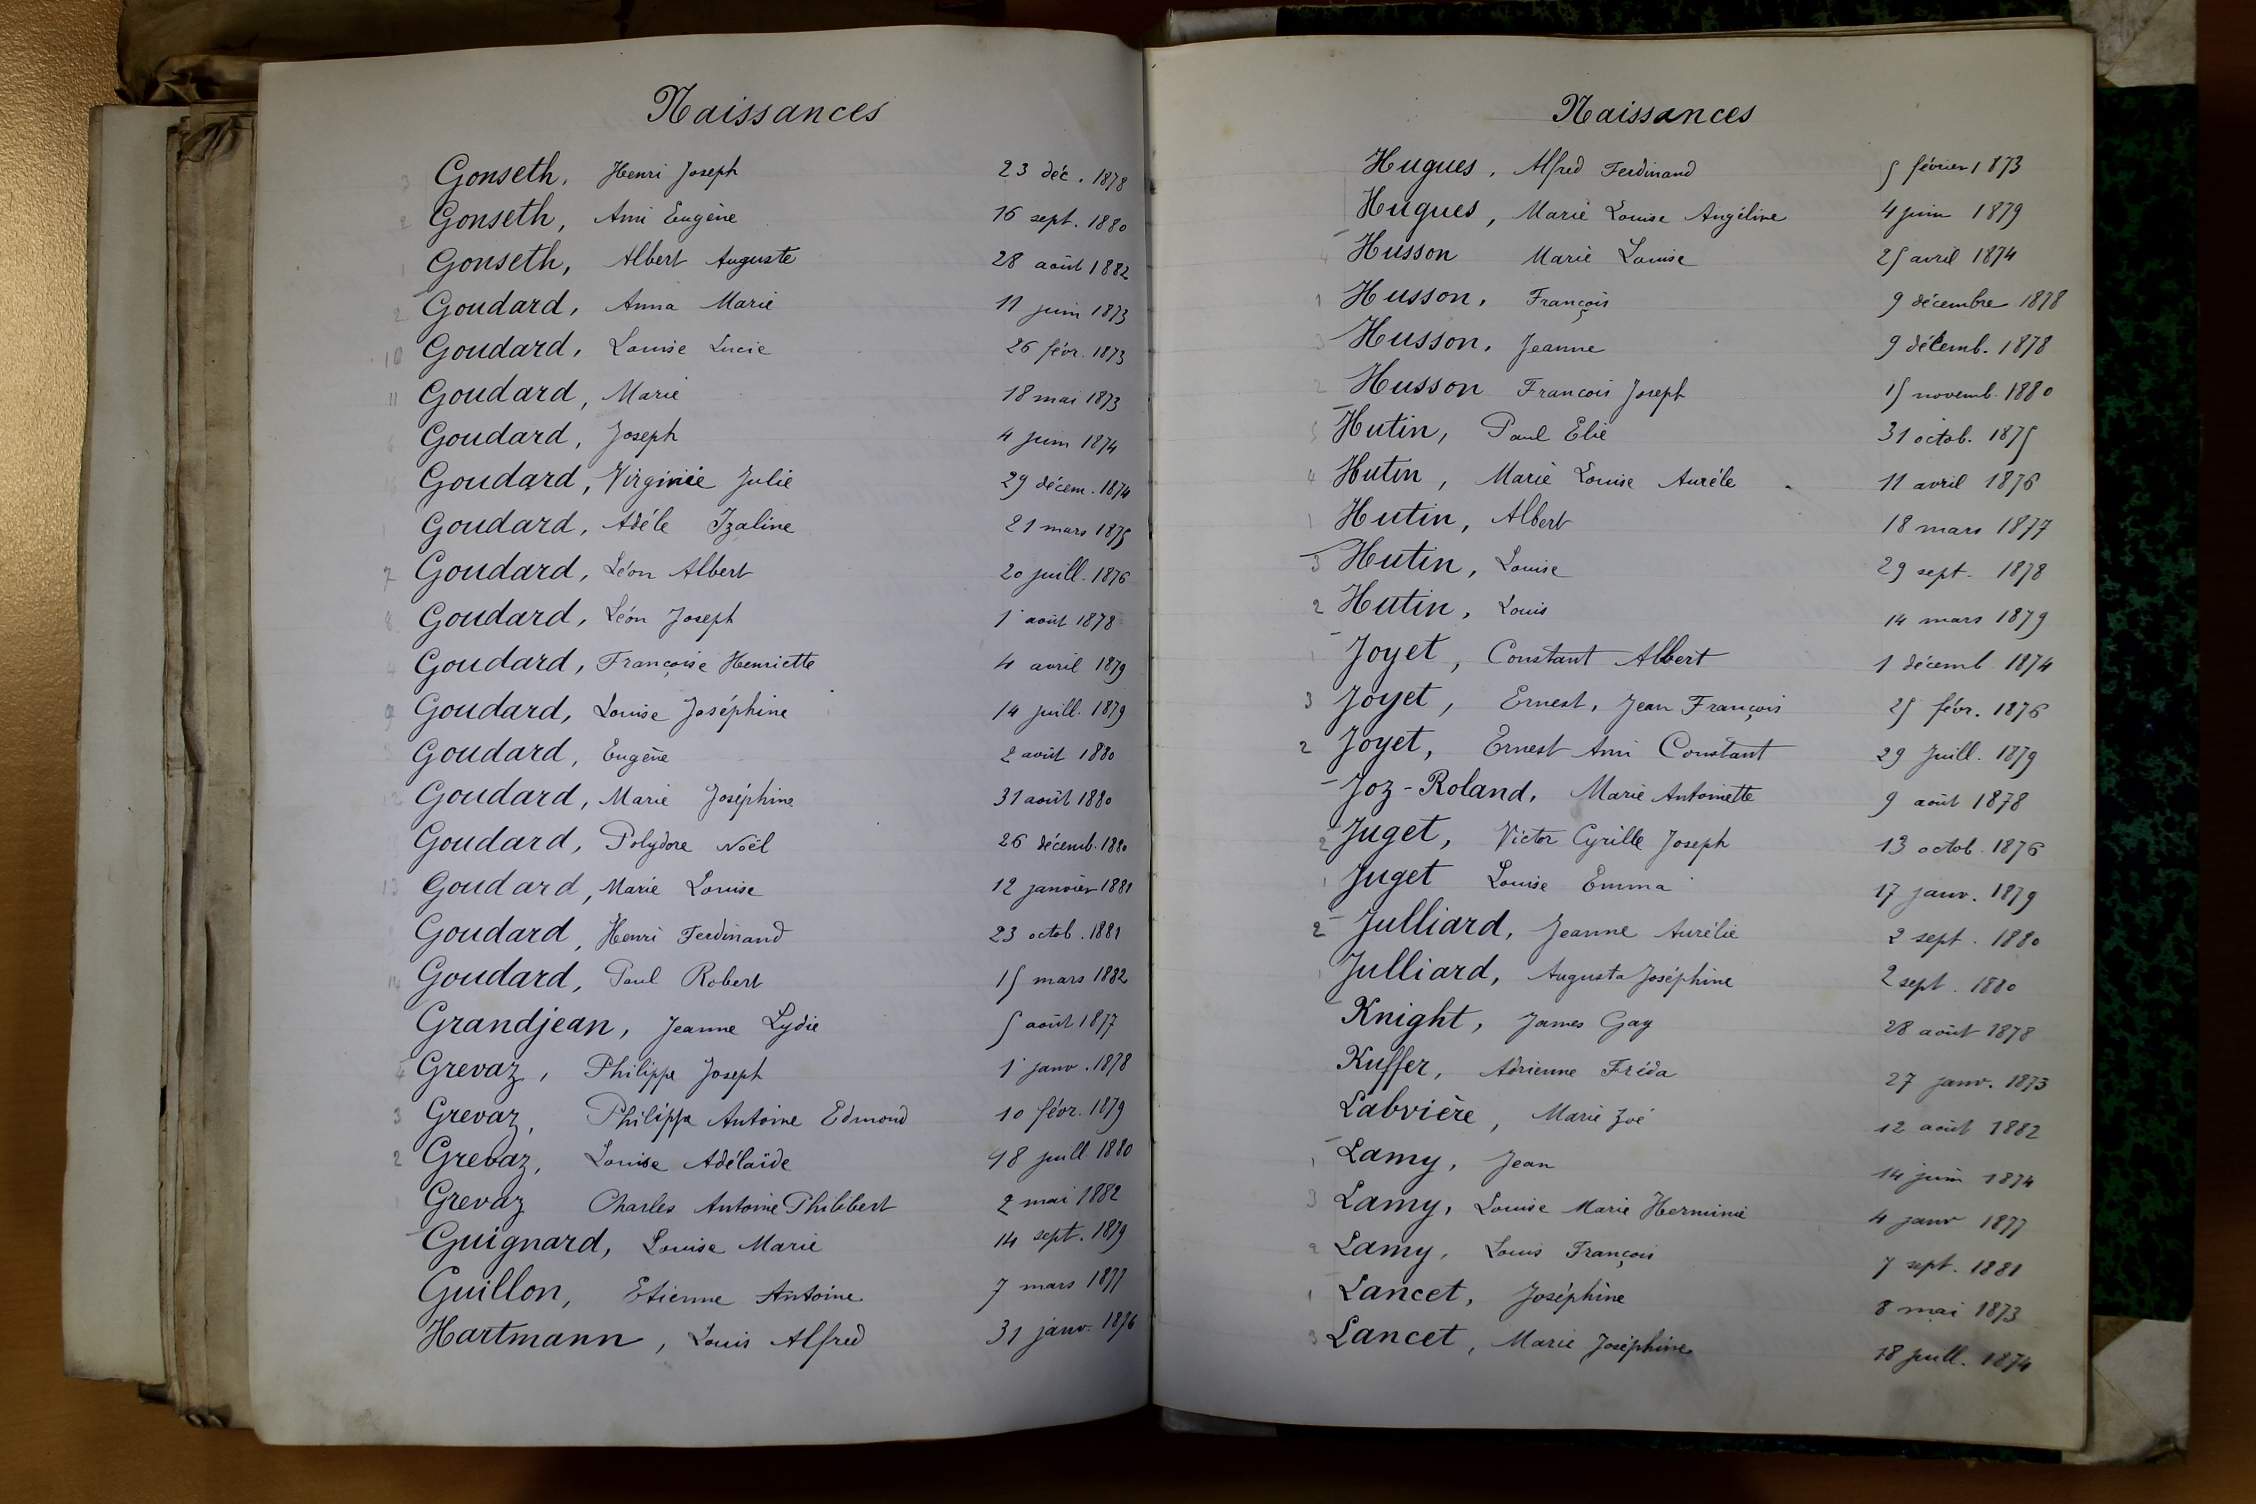 Naissances
3 Gonseth, Henri Joseph 23 déc. 1878
2 Gonseth, Ami Eugène 16 sept. 1880
1 Gonseth, Albert Auguste 28 août 1882
2 Goudard, Anna Marie 11 juin 1873
10 Goudard, Louise Lucie 26 févr. 1873
11 Goudard, Marie 18 mai 1873
6 Goudard, Joseph 4 juin 1874
Goudard, Virginie Julie 29 décem. 1874
1 Goudard, Adéle Izaline 21 mars 1875
7 Goudard, Léon Albert 20 juill. 1876
8 Goudard, Léon Joseph 1 août 1878
4 Goudard, Françoise Henriette 4 avril 1879
9 Goudard, Louise Joséphine 14 juill. 1879
Goudard, Eugène 2 août 1880
12 Goudard, Marie Joséphine 31 août 1880
Goudard, Polydore Noël 26 décemb. 1880
13 Goudard, Marie Louise 12 janvier 1881
Goudard, Henri Ferdinand 23 octob. 1881
14 Goudard, Paul Robert 15 mars 1882
Grandjean, Jeanne Lydie 5 août 1877
4 Grevaz, Philippe Joseph 1 janv. 1878
3 Grevaz, Philippe Antoine Edmond 10 févr. 1879
2 Grevaz, Louise Adélaïde 18 juill 1880
1 Grevaz Charles Antoine Philibert 2 mai 1882
Guignard, Louise Marie 14 sept. 1879
Guillon, Etienne Antoine 7 mars 1877
Hartmann, Louis Alfred 31 janv. 1876
Naissances
Hugues, Alfred Ferdinand 5 février 1873
Hugues, Marie Louise Angéline 4 juin 1879
4 Husson Marie Louise 25 avril 1874
1 Husson, François 9 décembre 1878
3 Husson, Jeanne 9 décemb. 1878
2 Husson François Joseph 15 novemb. 1880
5 Hutin, Paul Elie 31 octob. 1875
4 Hutin, Marie Louise Auréle 11 avril 1876
1 Hutin, Albert 18 mars 1877
3 Hutin, Louise 29 sept. 1878
2 Hutin, Louis 14 mars 1879
1 Joyet, Constant Albert 1 décemb 1874
3 Joyet, Ernest, Jean François 25 févr. 1876
2 Joyet, Ernest Ami Constant 29 Juill. 1879
Joz-Roland, Marie Antoinette 9 août 1878
2 Juget, Victor Cyrille Joseph 13 octob. 1876
1 Juget Louise Emma 17 janv. 1879
2 Julliard, Jeanne Aurélie 2 sept. 1880
1 Julliard, Augusta Joséphine 2 sept. 1880
Knight, James Gay 28 août 1878
Kuffer, Adrienne Frida 27 janv. 1873
Labvière, Marie Zoé 12 août 1882
1 Lamy, Jean 14 juin 1874
3 Lamy, Louise Marie Herminie 4 janv 1877
2 Lamy, Louis François 7 sept. 1881
1 Lancet, Joséphine 8 mai 1873
3 Lancet, Marie Joséphine 18 juill. 1874